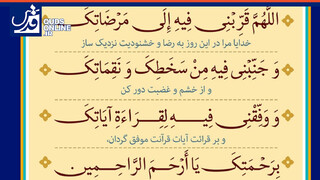 قدس
QUDS
ONLINE
.IR
اللَّهُمَّ قَرِّبْنِي فِيهِ إِلَى مَرْضَاتِكَ
خدایا مرا در این روز به رضا و خشنودیت نزدیک ساز
وَ جَنِّبْنِي فِيهِ مِنْ سَخَطِكَ وَ نَقِمَاتِكَ
و از خشم و غضبت دور کن
وَ وَفِّقْنِي فِيهِ لِقِرَاءَةِ آيَاتِكَ
و بر قرائت آیات قرآنت موفق گردان،
بِرَحْمَتِكَ يَا أَرْحَمَ الرَّاحِمِينَ